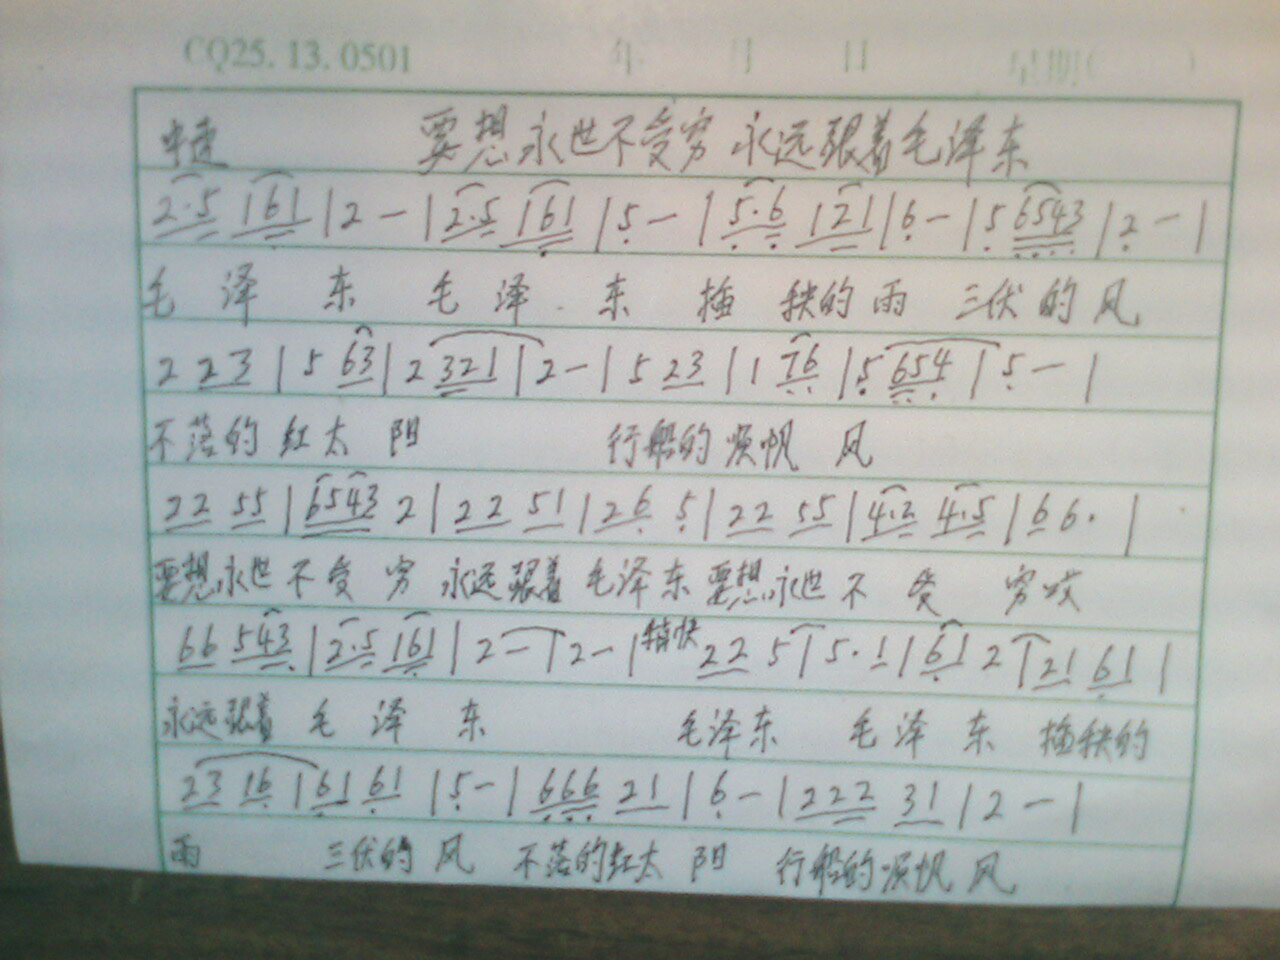 CQ25.13.0501 年 月 日 星期( )
中速 要想永世不受穷 永远跟着毛泽东
2·5 161 | 2 – | 2·5 161 | 5 – | 5·6 121 | 6 – | 5 6543 | 2 – |
毛 泽 东 毛 泽 东 插 秧的 雨 三伏 的 风
2 23 | 5 63 | 2 321 | 2 – | 5 23 | 1 76 | 5 654 | 5 – |
不落的 红太 阳 行船的 顺帆 风
22 55 | 6543 2 | 22 51 | 26 5 | 22 55 | 4·2 4·5 | 6 6· |
要想永世 不 受 穷 永远跟着 毛泽东 要想永世 不 受 穷哎
66 543 | 2·5 161 | 2 – | 2 – | 稍快 22 5 | 5· 1 | 61 2 | 21 61 |
永远跟着 毛 泽 东 毛泽东 毛 泽 东 插秧的
23 16 | 61 61 | 5 – | 666 21 | 6 – | 222 31 | 2 – |
雨 三伏的 风 不落的红太 阳 行船的顺帆 风